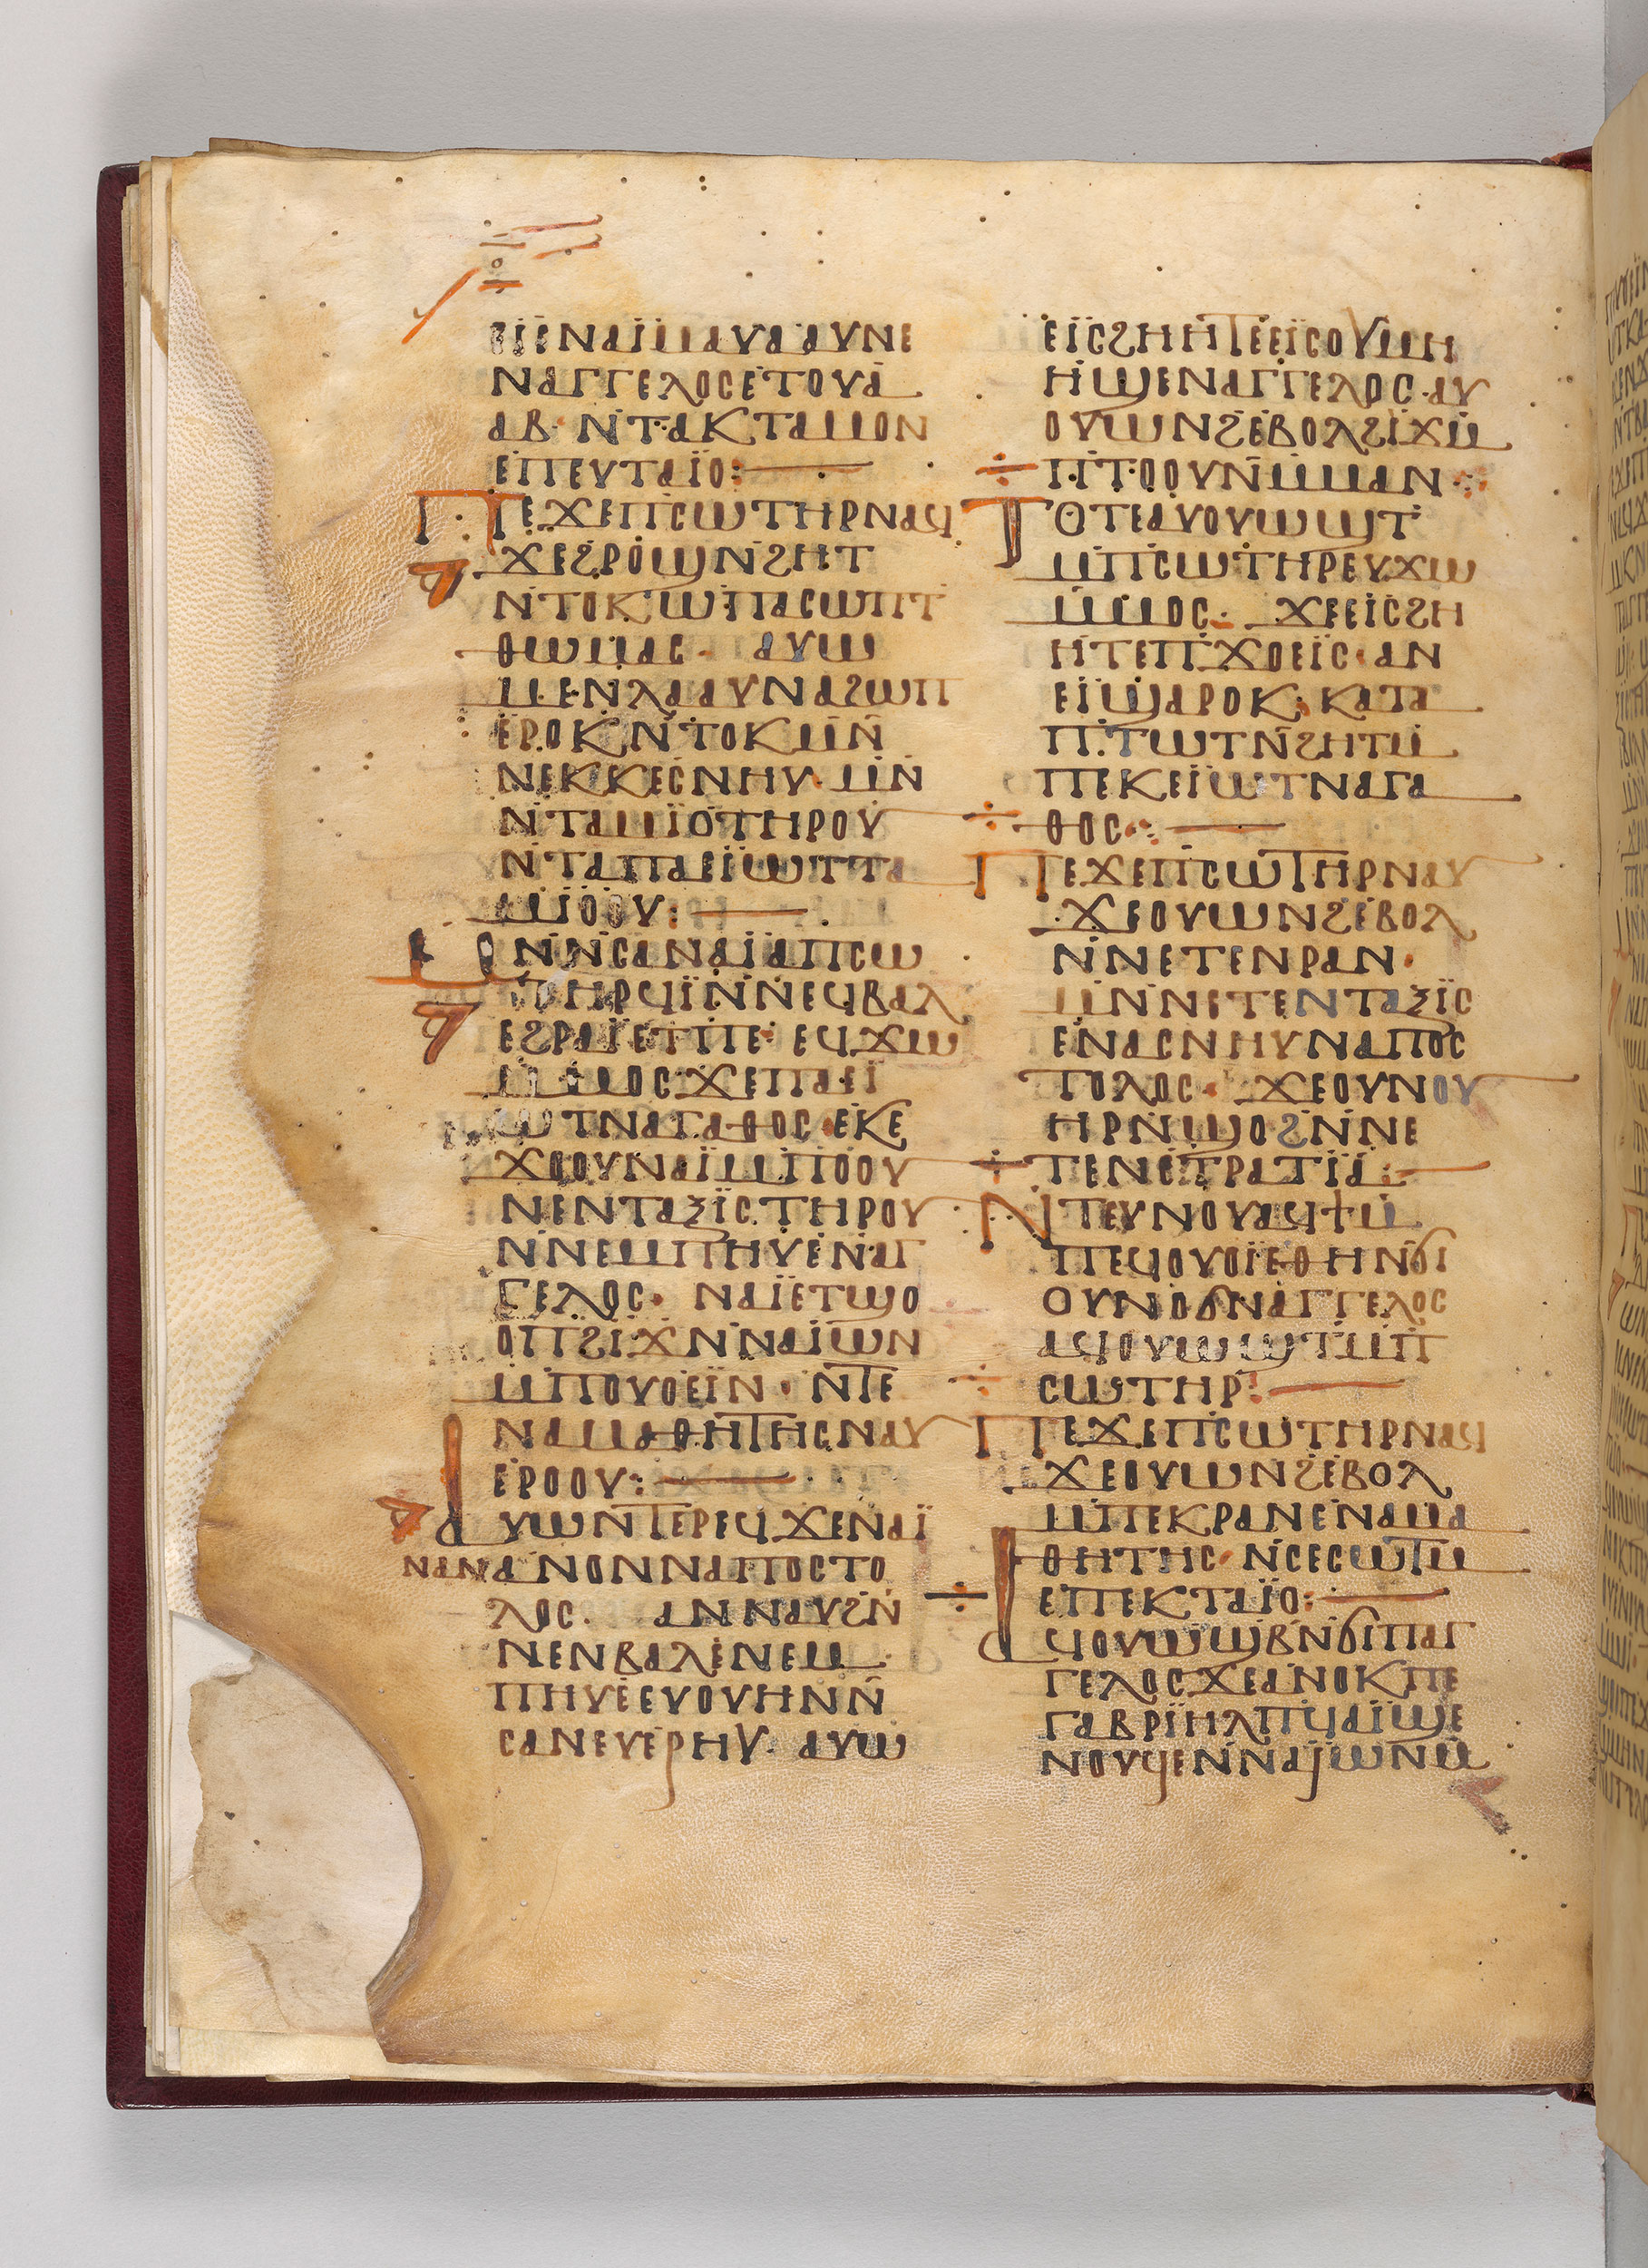 ⲉⲓ̈ⲉⲛⲁⲓ̈ⲙⲁⲩⲁⲁⲩⲛⲉ
ⲛⲁⲅⲅⲉⲗⲟⲥⲉⲧⲟⲩⲁ
ⲁⲃ· ⲛ̇ⲧⲁⲕⲧⲁⲙⲟⲛ
ⲉⲡⲉⲩⲧⲁⲓ̈ⲟ:
ⲡⲉϫⲉⲡⲥⲱⲧⲏⲣⲛⲁϥ
ϫⲉϩⲣⲟϣⲛ̇ϩⲏⲧ
ⲛ̇ⲧⲟⲕⲱⲡⲁⲥⲱⲧⲡ
ⲑⲱⲙⲁⲥ· ⲁⲩⲱ
ⲙⲉⲛⲗⲁⲁⲩⲛⲁϩⲱⲡ
ⲉⲣⲟⲕⲛ̇ⲧⲟⲕⲙⲛ̇
ⲛⲉⲕⲕⲉⲥⲛⲏⲩ· ⲙⲛ̇
ⲛ̇ⲧⲁⲙⲓ̈ⲟⲧⲏⲣⲟⲩ
ⲛ̇ⲧⲁⲡⲁⲉⲓ̈ⲱⲧⲧⲁ
ⲙⲓ̈ⲟⲟⲩ:
ⲙⲛ̇ⲛ̇ⲥⲁⲛⲁⲓ̈ⲁⲡⲥⲱ
ⲧⲏⲣϥⲓ̈ⲛ̇ⲛⲉϥⲃⲁⲗ
ⲉϩⲣⲁⲓ̈ⲉⲧⲡⲉ· ⲉϥϫⲱ
ⲙ̇ⲙⲟⲥϫⲉⲡⲁⲉⲓ
ⲱⲧⲛⲁⲅⲁⲑⲟⲥ·ⲉⲕⲉ
ϫⲟⲟⲩⲛⲁⲓ̈ⲙ̇ⲡⲟⲟⲩ
ⲛⲉⲛⲧⲁⲝⲓ̈ⲥⲧⲏⲣⲟⲩ
ⲛ̇ⲛⲉⲙⲡⲏⲩⲉⲛ̇ⲁⲅ
ⲅⲉⲗⲟⲥ· ⲛⲁⲓ̈ⲉⲧϣⲟ
ⲟⲡϩⲓϫⲛ̇ⲛⲁⲓⲱⲛ
ⲙ̇ⲡⲟⲩⲟⲉⲓ̈ⲛ· ⲛ̇ⲧⲉ
ⲛⲁⲙⲁⲑⲏⲧⲏⲥⲛⲁⲩ
ⲉⲣⲟⲟⲩ:
ⲁⲩⲱⲛ̇ⲧⲉⲣⲉϥϫⲉⲛⲁⲓ̈
ⲛⲁⲛⲁⲛⲟⲛⲛⲁⲡⲟⲥⲧⲟ
ⲗⲟⲥ. ⲁⲛⲛⲁⲩϩⲛ̇
ⲛⲉⲛⲃⲁⲗⲉ̇ⲛⲉⲙ
ⲡⲏⲩⲉ̇ⲉⲩⲟⲩⲏⲛⲛ̇
ⲥⲁⲛⲉⲩⲉⲣⲏⲩ· ⲁⲩⲱ
ⲉⲓ̈ⲥϩⲏⲏⲧⲉⲉⲓ̈ⲥⲟⲩⲙⲏ
ⲏϣⲉⲛⲁⲅⲅⲉⲗⲟⲥ·ⲁⲩ
ⲟⲩⲱⲛϩⲉ̇ⲃⲟⲗϩⲓϫⲙ̇
ⲡⲧⲟⲟⲩⲛ̇ⲙ̇ⲙⲁⲛ
ⲧⲟⲧⲉⲁⲩⲟⲩⲱϣⲧ
ⲙ̇ⲡⲥⲱⲧⲏⲣⲉⲩϫⲱ
ⲙ̇ⲙⲟⲥ· ϫⲉⲉⲓⲥϩⲏ
ⲏⲧⲉⲡϫⲟⲉⲓ̈ⲥ·ⲁⲛ
ⲉⲓϣⲁⲣⲟⲕ· ⲕⲁⲧⲁ
ⲡⲧⲱⲧⲛ̇ϩⲏⲧⲙ̇
ⲡⲉⲕⲉⲓ̈ⲱⲧⲛⲁⲅⲁ
ⲑⲟⲥ:
ⲡⲉϫⲉⲡⲥⲱⲧⲏⲣⲛⲁⲩ
ϫⲉⲟⲩⲱⲛϩⲉ̇ⲃⲟⲗ
ⲛ̇ⲛⲉⲧⲉⲛⲣⲁⲛ·
ⲙⲛ̇ⲛⲉⲧⲉⲛⲧⲁⲝⲓ̈ⲥ
ⲉⲛⲁⲥⲛⲏⲩⲛⲁⲡⲟⲥ
ⲧⲟⲗⲟⲥ· ϫⲉⲟⲩⲛⲟⲩ
ⲏⲣⲛ̇ϣⲟϩⲛ̇ⲛⲉ
ⲧⲉⲛⲥⲧⲣⲁⲧⲓ̈ⲁ:
ⲛ̇ⲧⲉⲩⲛⲟⲩⲁϥϯⲙ̇
ⲡⲉϥⲟⲩⲟⲓ̈ⲉⲑⲏⲛ̇ϭⲓ
ⲟⲩⲛⲟϭⲛⲁⲅⲅⲉⲗⲟⲥ
ⲁϥⲟⲩⲱϣⲧⲙ̇ⲡ
ⲥⲱⲧⲏⲣ:
ⲡⲉϫⲉⲡⲥⲱⲧⲏⲣⲛⲁϥ
ϫⲉⲟⲩⲱⲛϩⲉ̇ⲃⲟⲗ
ⲙ̇ⲡⲉⲕⲣⲁⲛⲉ̇ⲛⲁⲙⲁ
ⲑⲏⲧⲏⲥ· ⲛ̇ⲥⲉⲥⲱⲧⲙ̇
ⲉⲡⲉⲕⲧⲁⲓ̈ⲟ:
ⲁϥⲟⲩⲱϣⲃⲛ̇ϭⲓⲡⲁⲅ
ⲅⲉⲗⲟⲥϫⲉⲁⲛⲟⲕⲡⲉ
ⲅⲁⲃⲣⲓ̈ⲏⲗⲡϥⲁⲓ̈ϣⲉ
ⲛⲟⲩϥⲉⲛ̇ⲛⲁⲓⲱⲛⲙ̇